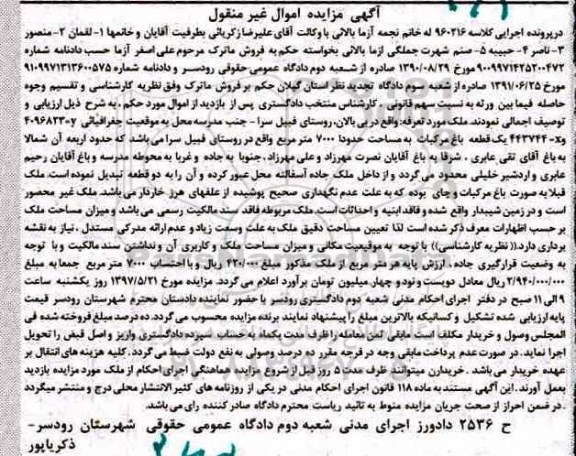 آگهی مزایده اموال غیر منقول
درپرونده اجرایی کلاسه ۹۶۰۲۱۶ له خانم نجمه آزما بالائی با وکالت آقای علیرضا زکریائی بطرفیت آقایان و خانمها ۱-لقمان ۲-منصور
۳-ناصر ۴- حبیبه ۵- صنم شهرت جملگی ازما بالائی بخواسته حکم به فروش ماترک مرحوم علی اصغر آزما حسب دادنامه شماره
۹۰۰۹۹۷۱۴۲۵۲۰۰۴۷۲ مورخ ۱۳۹۰/۰۸/۲۹ صادره از شعبه دوم دادگاه عمومی حقوقی رودسر و دادنامه شماره ۹۱۰۹۹۷۱۳۱۳۶۰۰۵۷۵
مورخ ۱۳۹۱/۰۶/۲۵ صادره از شعبه سوم دادگاه تجدید نظر استان گیلان حکم بر فروش ماترک وفق نظریه کارشناسی و تقسیم وجوه
حاصله فیما بین ورثه به نسبت سهم قانونی ، کارشناس منتخب دادگستری پس از بازدید از اموال مورد حکم ، به شرح ذیل ارزیابی و
توصیف اجمالی نمودند. ملک مورد تعرفه: واقع در بی بالان، روستای فبیل سرا - جنب مدرسه محل به موقعیت جغرافیائی y=۴۰۹۶۸۲۳
وx=۴۴۳۷۴۴ یک قطعه باغ مرکبات به مساحت حدودا ۷۰۰۰ متر مربع واقع در روستای فبیل سرا می باشد که حدود اربعه آن شمالا
به باغ آقای تقی عابری ، شرقا به باغ آقایان نصرت مهرزاد و علی مهرزاد ، جنوبا به جاده و غربا به محوطه مدرسه و باغ آقایان رحیم
عابری و اردشیر خلیلی محدود می گردد و از داخل ملک جاده آسفالته محل عبور کرده و آن را به دو قطعه تبدیل نموده است. ملک
قبلا به صورت باغ مرکبات و چای بوده که به علت عدم نگهداری صحیح پوشیده از علفهای هرز خاردار می باشد. ملک غیر محصور
است و در زمین شیبدار واقع شده و فاقد ابنیه و احداثات است. ملک مربوطه فاقد سند مالکیت رسمی می باشد و میزان مساحت ملک
بر حسب اظهارات معرف ذکر شده است لذا تعیین مساحت دقیق ملک به علت وسعت زیاد و عدم ارائه مدرکی مستدل ، نیاز به نقشه
برداری دارد.(( نظریه کارشناسی)) با توجه به موقعیت مکانی و میزان مساحت ملک و کاربری آن و نداشتن سند مالکیت و با توجه
به وضعیت قرارگیری جاده ، ارزش پایه هر متر مربع از ملک مذکور مبلغ ۴۲۰/۰۰۰ ریال و با احتساب ۷۰۰۰ متر مربع جمعا به مبلغ
۲/۹۴۰/۰۰۰/۰۰۰ ریال معادل دویست و نود و چهار میلیون تومان برآورد اعلام می گردد. مزایده مورخ ۱۳۹۷/۵/۲۱ روز یکشنبه ساعت
۹ الی ۱۱ صبح در دفتر اجرای احکام مدنی شعبه دوم دادگستری رودسر با حضور نماینده دادستان محترم شهرستان رودسر قیمت
پایه ارزیابی شده تشکیل و کسانیکه بالاترین مبلغ را پیشنهاد نمایند برنده مزایده محسوب می گردد. ده درصد مبلغ فروخته شده فی
المجلس وصول و خریدار مکلف است مابقی ثمن معامله را ظرف مدت یکماه به حساب سپرده دادگستری واریز و اصل قبض را تحویل
اجرا نماید. در صورت عدم پرداخت مابقی وجه در فرجه مقرر ده درصد وصولی به نفع دولت ضبط می گردد. کلیه هزینه های انتقال بر
عهده خریدار می باشد . خریداران میتوانند ظرف مدت ۵ روز قبل از شروع مزایده با هماهنگی اجرای احکام از ملک مورد مزایده بازدید
بعمل آورند. این آگهی مستند به ماده ۱۱۸ قانون اجرای احکام مدنی در یکی از روزنامه های کثیر الانتشار محلی درج و منتشر میگردد
. در ضمن احراز از صحت جریان مزایده منوط به تائید ریاست محترم دادگاه صادر کننده رای می باشد.
ح ۲۵۳۶ دادورز اجرای مدنی شعبه دوم دادگاه عمومی حقوقی شهرستان رودسر-
ذکریاپور